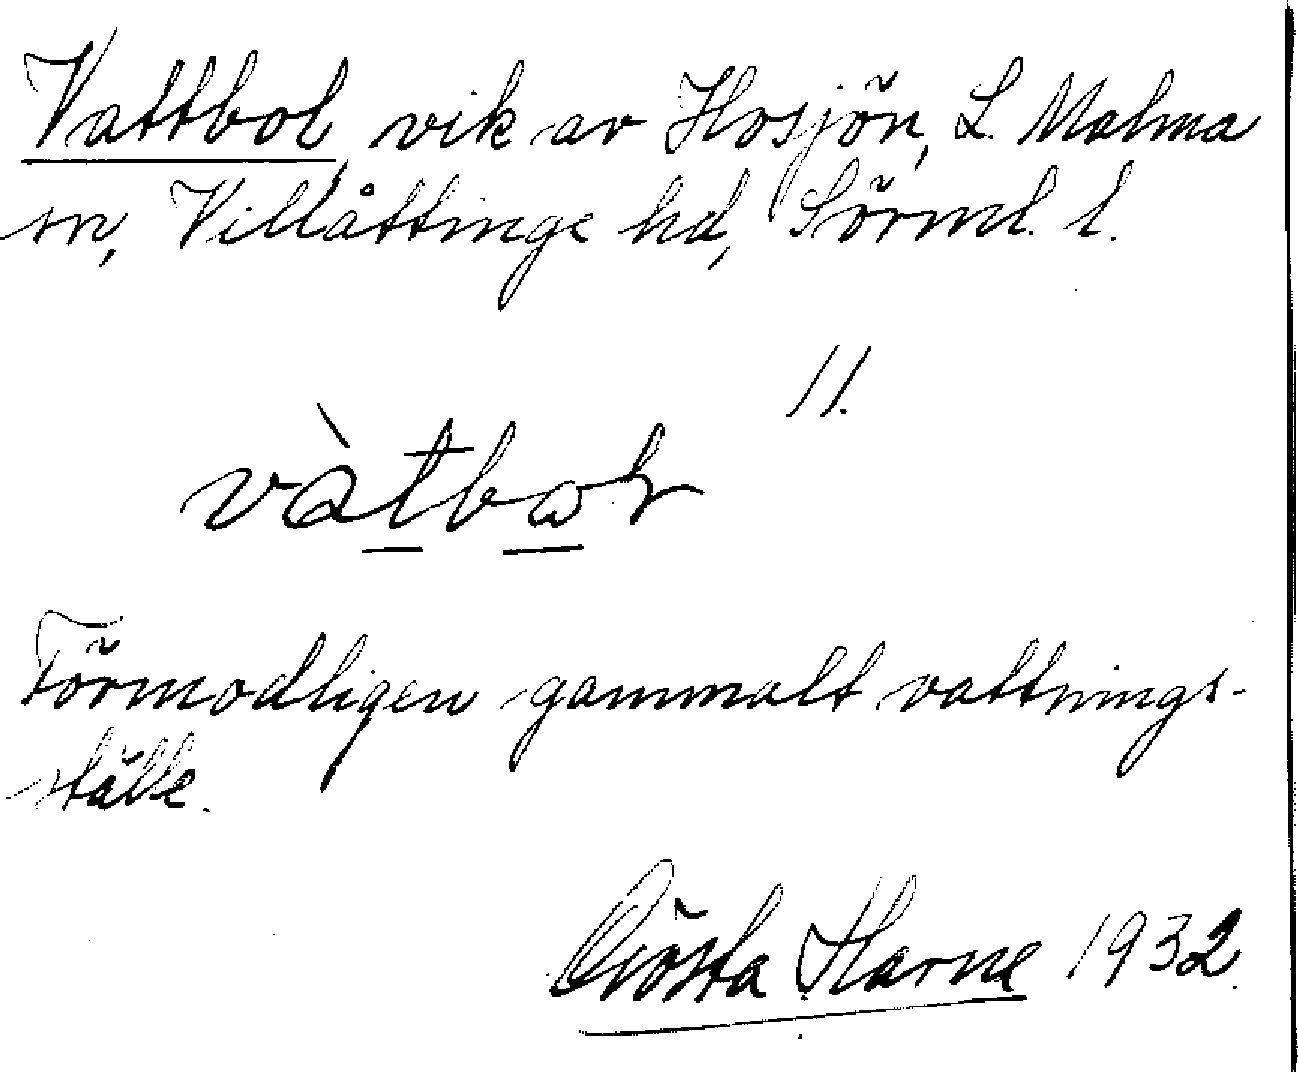 Vattbol, vik av Hosjön, L. Malma
sn, Villåttinge hd, Sörml. l.
11.
vàtbωr
Förmodligen gammalt vattnings-
ställe.
Gösta Harne 1932.